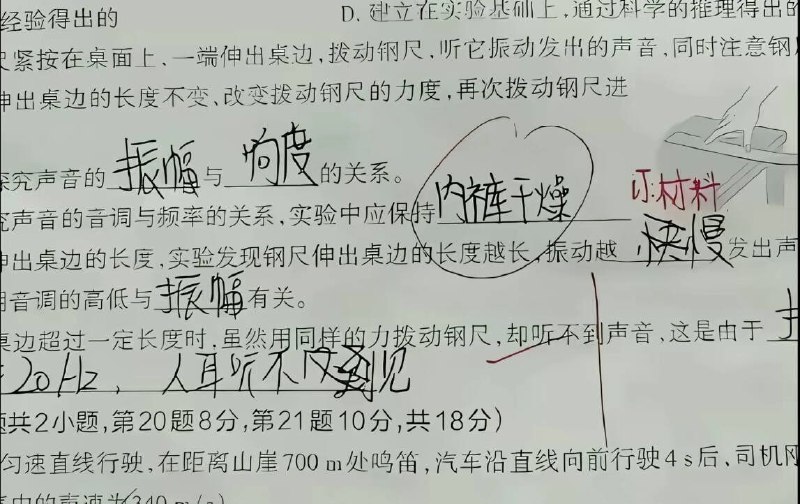 经验得出的 D. 建立在实验基础上,通过科学的推理得出的
紧按在桌面上、一端伸出桌边,拨动钢尺,听它振动发出的声音,同时注意钢
伸出桌边的长度不变、改变拨动钢尺的力度,再次拨动钢尺进
探究声音的振幅与响度的关系。
究声音的音调与频率的关系,实验中应保持内裤干燥 材料
出桌边的长度,实验发现钢尺伸出桌边的长度越长,振动越 慢发出声
音调的高低与振幅有关。
桌边超过一定长度时,虽然用同样的力拨动钢尺,却听不到声音,这是由于
20Hz, 人耳听不见
共2小题,第20题8分,第21题10分,共18分)
匀速直线行驶,在距离山崖700 m处鸣笛,汽车沿直线向前行驶4 s后、司机刚
中的声速为340 m/s)